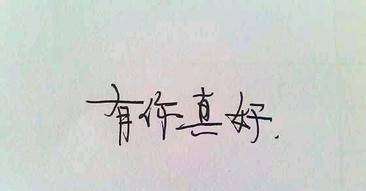 有你真好.